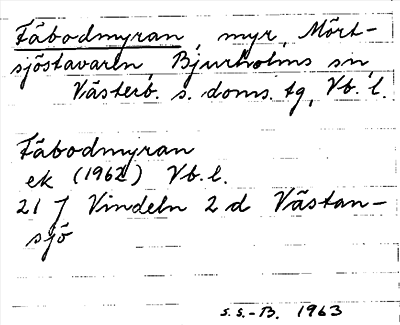 Fäbodmyran, myr, Mört-
sjöstavaren, Bjurholms sn,
Västerb. s. doms. tg, Vb. l.
Fäbodmyran
ek (1962) Vb. l.
21 J Vindeln 2 d Västan-
sjö
S.S.-B. 1963